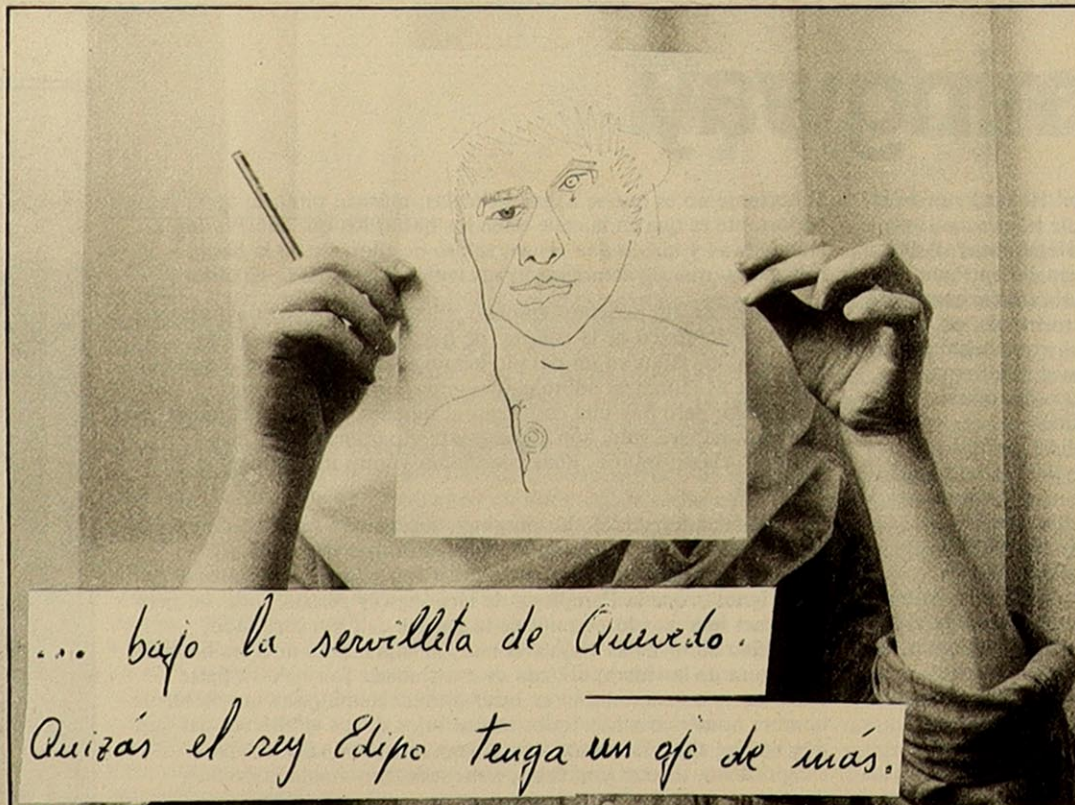 ... bajo la servilleta de Quevedo.
Quizás el rey Edipo tenga un ojo de más.